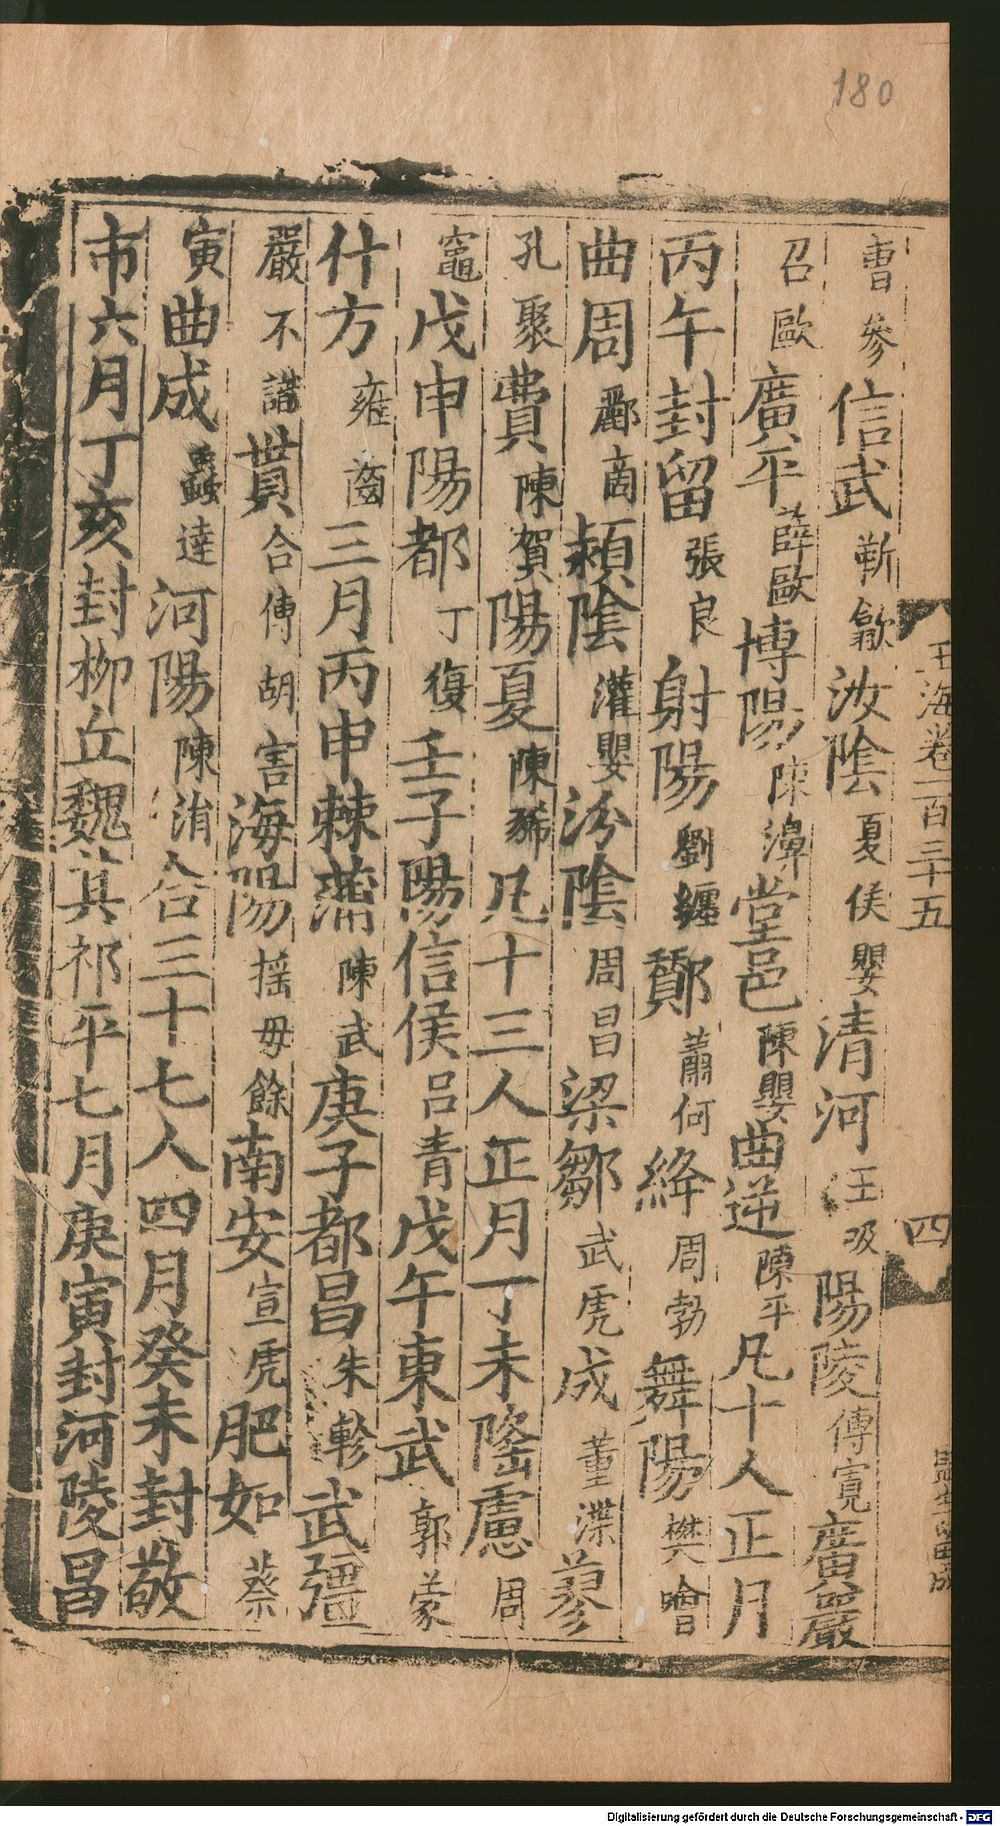 180
玉海卷一百三十五
四
曹參信武靳歙汝陰夏侯嬰清河王吸陽陵傅寬廣嚴
召歐廣平薛歐博陽陳濞堂邑陳嬰曲逆陳平凡十人正月
丙午封留張良射陽劉纏酇蕭何絳周勃舞陽樊噲
曲周酈商潁陰灌嬰汾陰周昌梁鄒武虎成董渫蓼
孔聚費陳賀陽夏陳豨凡十三人正月丁未隆慮周
竈戊申陽都丁復壬子陽信侯呂青戊午東武郭蒙
什方雍齒三月丙申棘蒲陳武庚子都昌朱軫武彊
嚴不諸貰合傅胡害海陽搖毋餘南安宣虎肥如蔡
寅曲成蟲達河陽陳涓合三十七人四月癸未封敬
市六月丁亥封柳丘魏其祁平七月庚寅封河陵昌
Digitalisierung gefördert durch die Deutsche Forschungsgemeinschaft - DFG